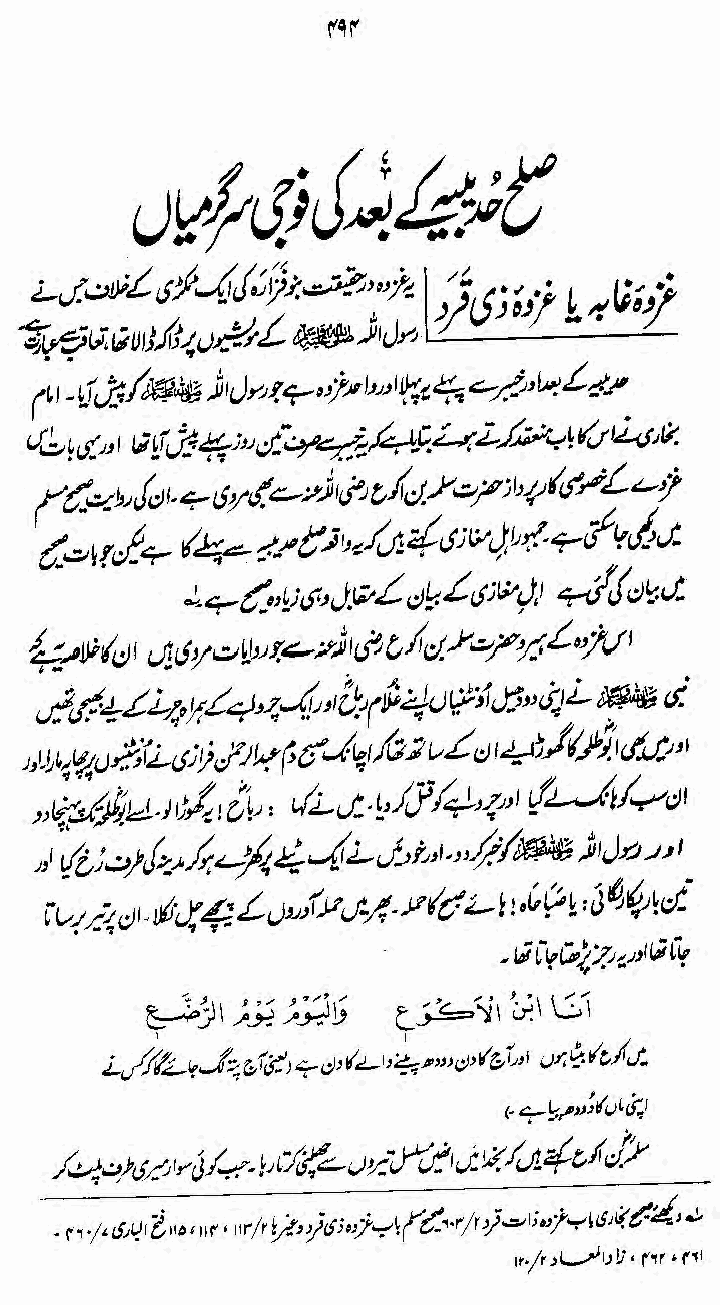 ۴۹۴
صلح حدیبیہ کے بعد کی فوجی سرگرمیاں
غزوۂ غابہ یا غزوۂ ذی قَرَد
یہ غزوہ درحقیقت بنو فَزَارَہ کی ایک ٹکڑی کے خلاف جس نے
رسول اللہ ﷺ کے مویشیوں پر ڈاکہ ڈالا تھا، تعاقب سے عبارت ہے
حدیبیہ کے بعد اور خیبر سے پہلے یہ پہلا اور واحد غزوہ ہے جو رسول اللہ ﷺ کو پیش آیا۔ امام
بخاری نے اس کا باب منعقد کرتے ہوئے بتایا ہے کہ یہ خیبر سے صرف تین روز پہلے پیش آیا تھا اور یہی بات اس
غزوے کے خصوصی کارپرداز حضرت سلمہ بن اکوع رضی اللہ عنہ سے بھی مروی ہے۔ ان کی روایت صحیح مسلم
میں دیکھی جاسکتی ہے۔ جمہور اہلِ مغازی کہتے ہیں کہ یہ واقعہ صلح حدیبیہ سے پہلے کا ہے لیکن جو بات صحیح
میں بیان کی گئی ہے اہلِ مغازی کے بیان کے مقابل وہی زیادہ صحیح ہے۔ لہ
اس غزوہ کے ہیرو حضرت سلمہ بن اکوع رضی اللہ عنہ سے جو روایات مروی ہیں ان کا خلاصہ یہ ہے کہ
نبی ﷺ نے اپنی دودھیل اُونٹنیاں اپنے غلام رباحؓ اور ایک چرواہے کے ہمراہ چرنے کے لیے بھیجی تھیں
اور میں بھی ابوطلحہؓ کا گھوڑا لیے ان کے ساتھ تھا کہ اچانک صبح دم عبدالرحمٰن فزازی نے اُونٹنیوں پر چھاپہ مارا اور
ان سب کو ہانک لے گیا اور چرواہے کو قتل کردیا۔ میں نے کہا : رباح! یہ گھوڑا لو۔ اسے ابوطلحہؓ تک پہنچا دو
اور رسول اللہ ﷺ کو خبر کردو۔ اور خود میں نے ایک ٹیلے پر کھڑے ہوکر مدینہ کی طرف رُخ کیا اور
تین بار پکار لگائی : یا صَبَاحَاہ! ہائے صبح کا حملہ۔ پھر میں حملہ آوروں کے پیچھے چل نکلا۔ ان پر تیر برساتا
جاتا تھا اور یہ رجز پڑھتا جاتا تھا۔
اَنَا ابْنُ الْاَكْوَع وَالْيَوْمُ يَوْمُ الرُّضَّع
میں اکوع کا بیٹا ہوں اور آج کا دن دودھ پینے والے کا دن ہے (یعنی آج پتہ لگ جائے گا کہ کس نے
اپنی ماں کا دُودھ پیا ہے۔)
سلمہؓ بن اکوع کہتے ہیں کہ بخدا میں انھیں مسلسل تیروں سے چھلنی کرتا رہا۔ جب کوئی سوار میری طرف پلٹ کر
لہ دیکھئے صحیح بخاری باب غزوہ ذات قرد ۶۰۳/۲ صحیح مسلم باب غزوہ ذی قرد وغیرہا ۱۱۳/۲ ، ۱۱۴ ، ۱۱۵ فتح الباری ۴۶۰/۷ ۔
۴۶۱ ، ۴۶۲ ، زاد المعاد ۱۲۰/۲